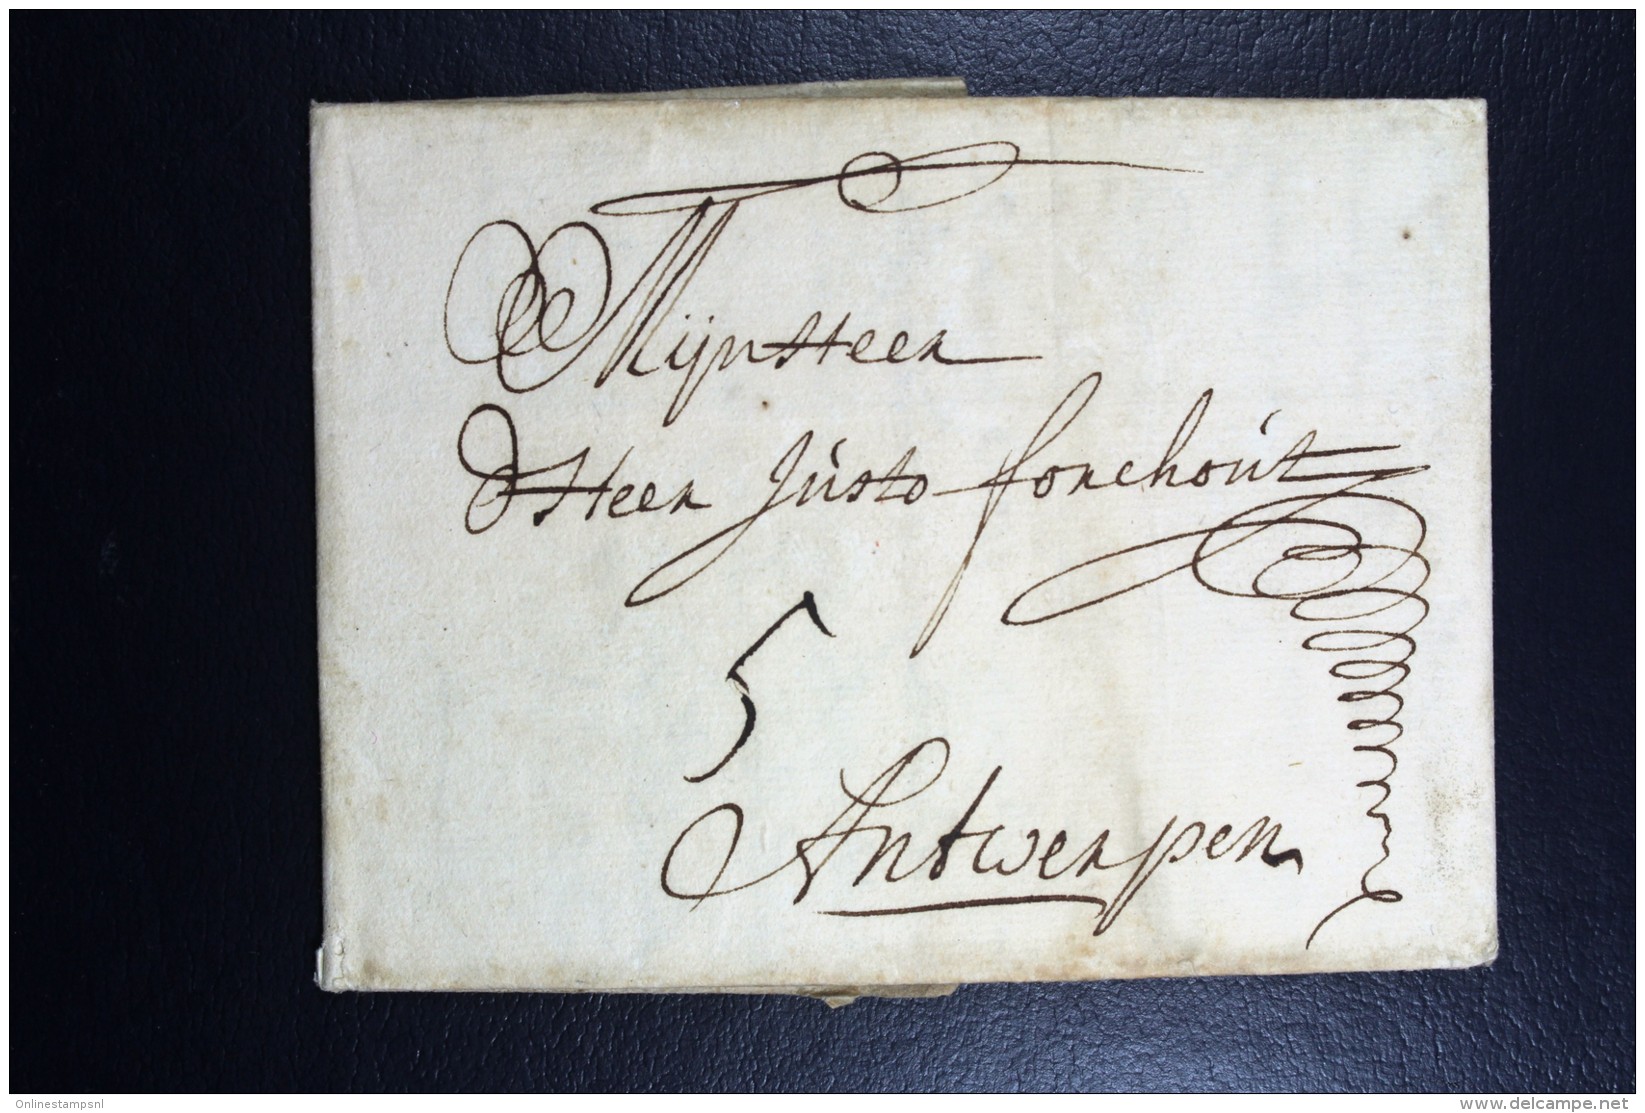 MijnHeer
dHeer Justo forchout
5
Antwerpen
Onlinestampsnl
www.delcampe.net